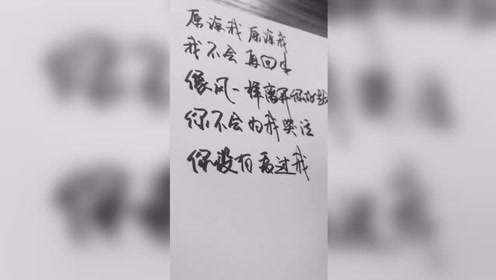 原谅我 原谅我
我不会再回来
像风一样离开你的
你不会为我哭泣
你没有爱过我